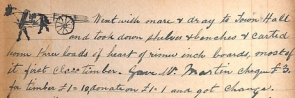 Went with mare & dray to Town Hall
and took down shelves & benches & carted
home three loads of heart of rimu inch boards, most of
it first class timber. Gave Mr. Martin cheque £3.
for timber £1=10, donation £1=1 and got change.